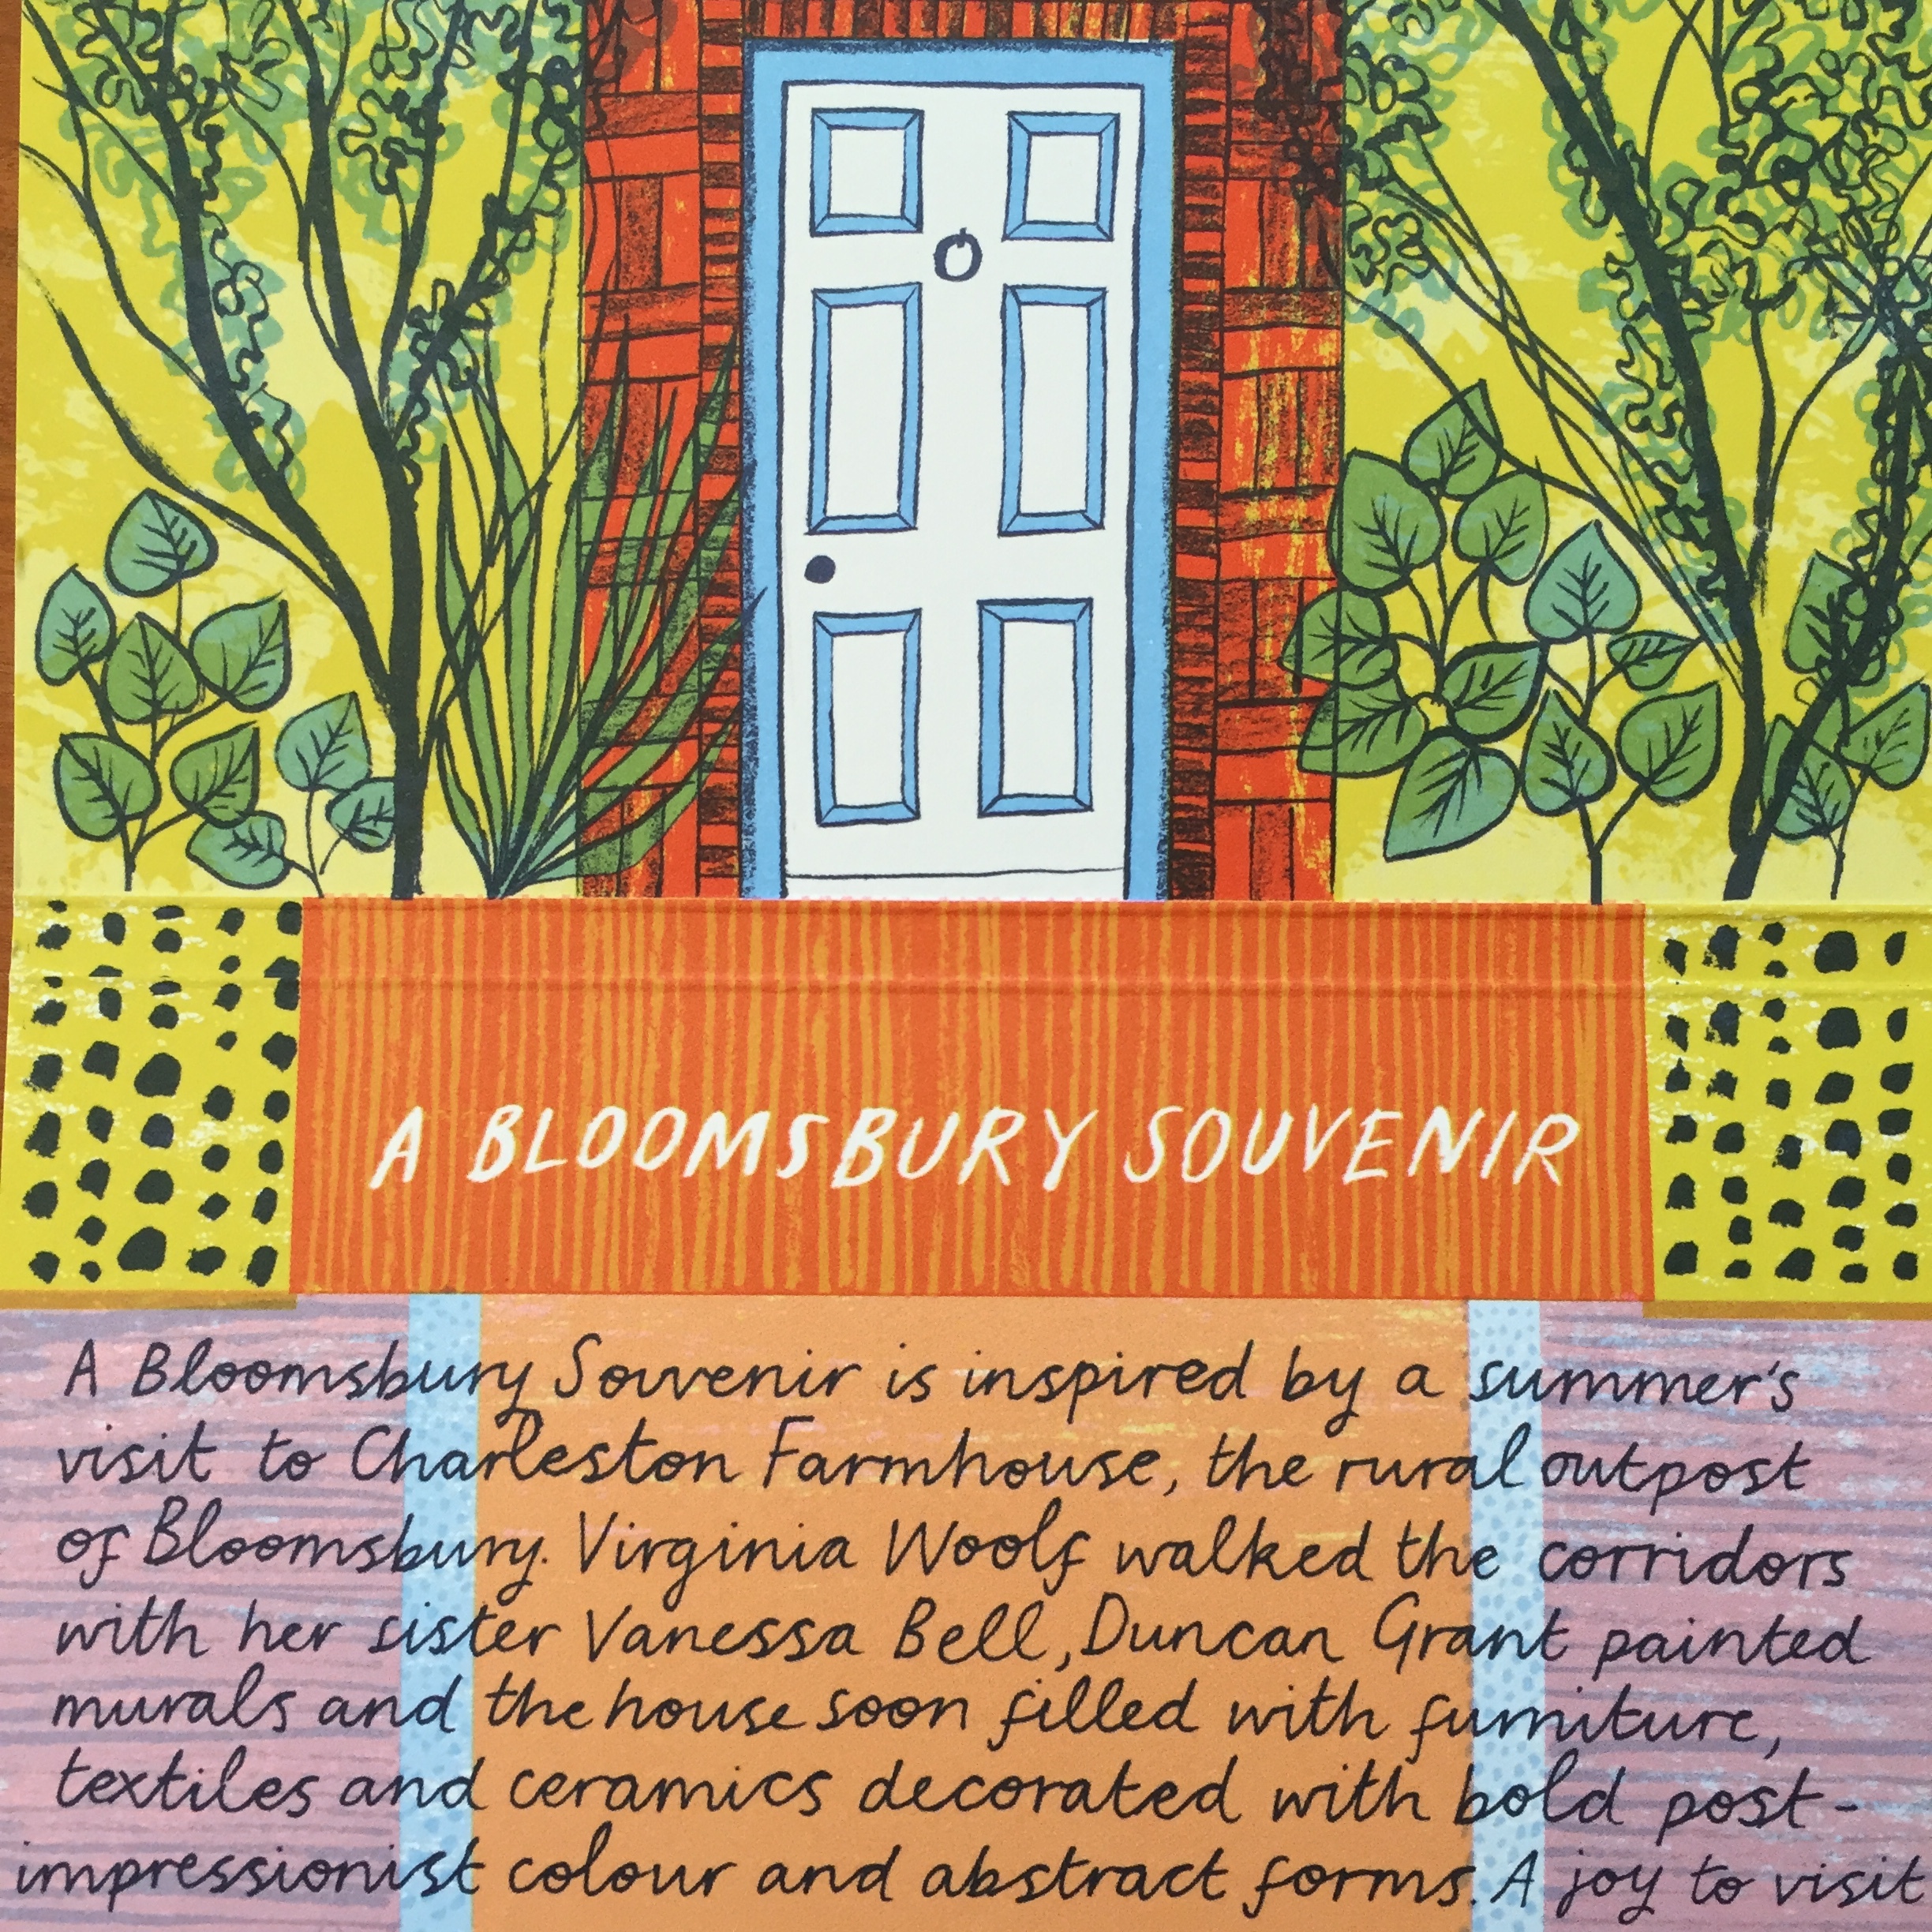 A BLOOMSBURY SOUVENIR
A Bloomsbury Souvenir is inspired by a summer's
visit to Charleston Farmhouse, the rural outpost
of Bloomsbury. Virginia Woolf walked the corridors
with her sister Vanessa Bell, Duncan Grant painted
murals and the house soon filled with furniture,
textiles and ceramics decorated with bold post-
impressionist colour and abstract forms. A joy to visit